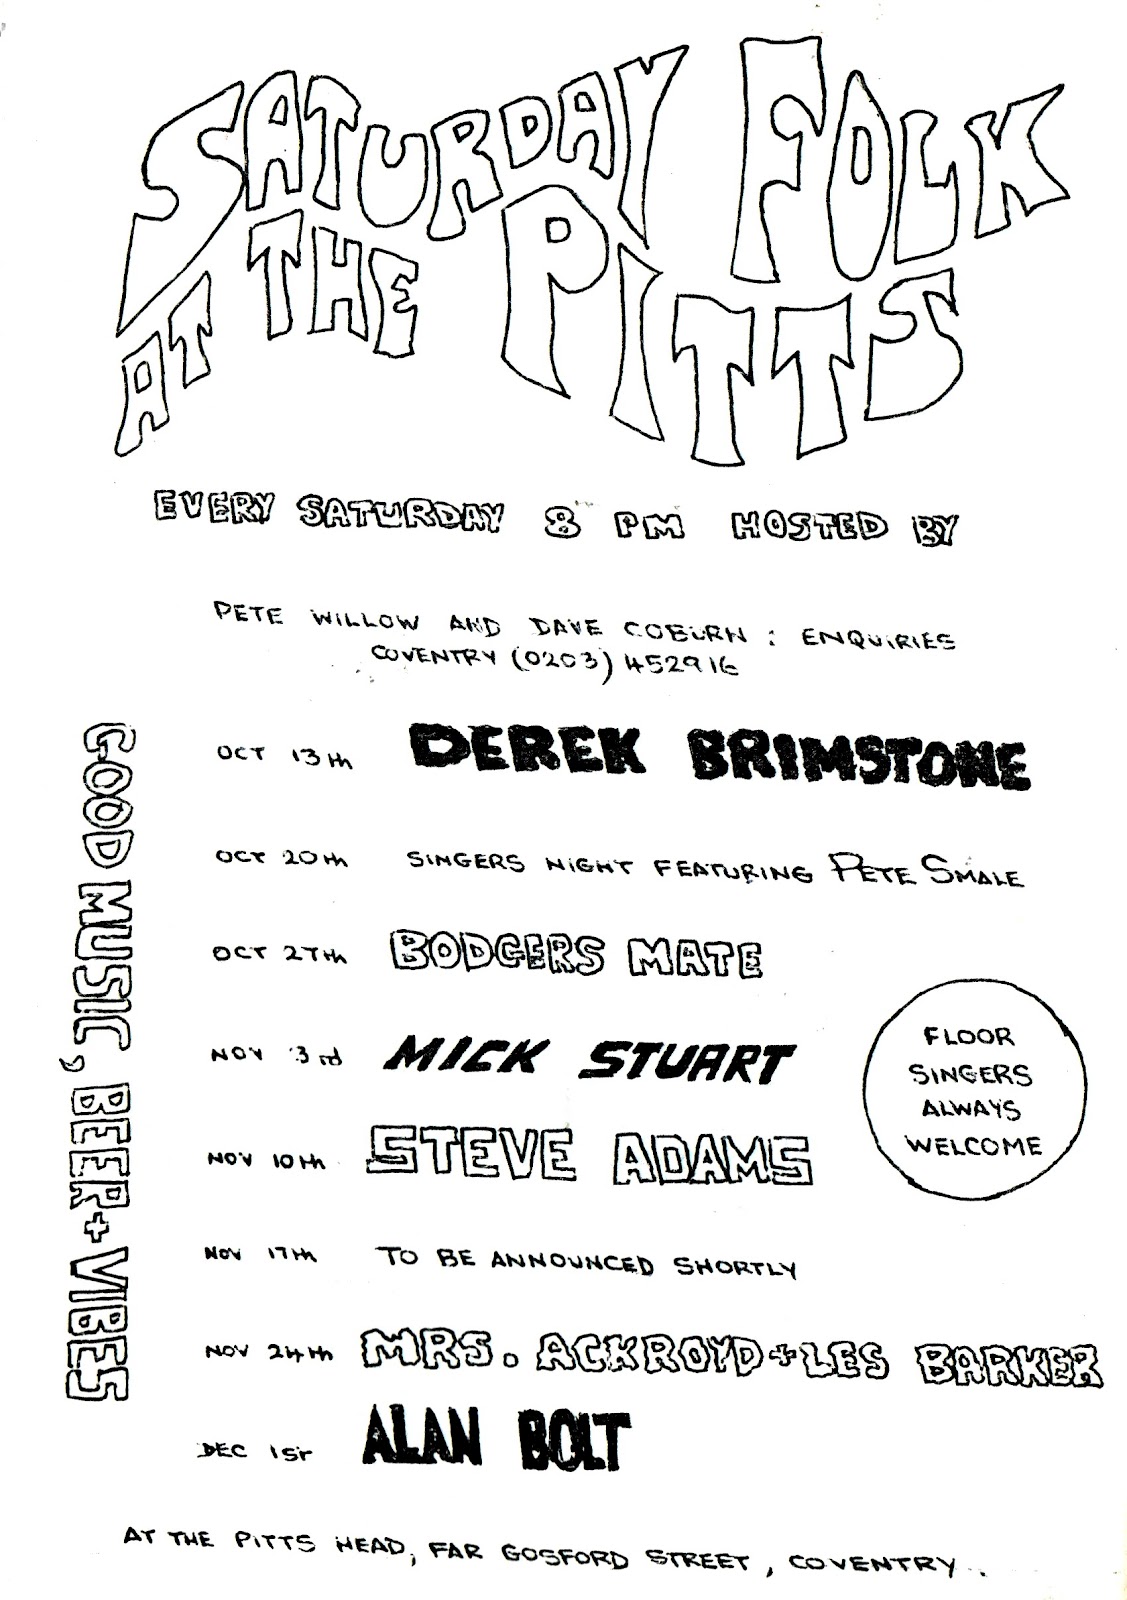 SATURDAY FOLK
AT THE PITTS
EVERY SATURDAY 8 PM HOSTED BY
PETE WILLOW AND DAVE COBURN : ENQUIRIES
COVENTRY (0203) 452916
GOOD MUSIC, BEER + VIBES
OCT 13th DEREK BRIMSTONE
OCT 20th SINGERS NIGHT FEATURING PETE SMALE
OCT 27th BODGERS MATE
NOV 3rd MICK STUART
FLOOR
SINGERS
ALWAYS
WELCOME
NOV 10th STEVE ADAMS
NOV 17th TO BE ANNOUNCED SHORTLY
NOV 24th MRS. ACKROYD + LES BARKER
DEC 1st ALAN BOLT
AT THE PITTS HEAD, FAR GOSFORD STREET, COVENTRY.